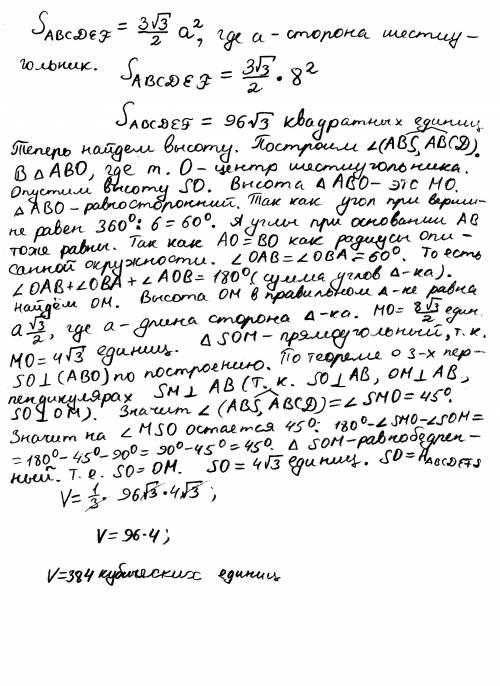 S_ABCDEF = 3√3/2 a², где a - сторона шестиу-
гольник. S_ABCDEF = 3√3/2 · 8²
S_ABCDEF = 96√3 квадратных единиц
Теперь найдем высоту. Построим ∠(ABS, ABCD).
В △ABO, где т. O - центр шестиугольника.
Опустим высоту SO. Высота △ABO - это MO.
△ABO - равносторонний. Так как угол при верши-
не равен 360°: 6 = 60°. А углы при основании AB
тоже равны. Так как AO = BO как радиусы опи-
санной окружности. ∠OAB = ∠OBA = 60°. То есть
∠OAB + ∠OBA + ∠AOB = 180° (сумма углов △-ка).
найдём OM. Высота OM в правильном △-ке равна
a √3/2, где a - длина сторона △-ка. MO = 8√3/2 един.
MO = 4√3 единиц. △SOM - прямоугольный, т.к.
SO ⊥ (ABO) по построению. По теореме о 3-х пер-
пендикулярах SM ⊥ AB (т.к. SO ⊥ AB, OM ⊥ AB,
SO ⊥ OM). Значит ∠(ABS, ABCD) = ∠SMO = 45°.
Значит на ∠MSO остается 45°: 180° - ∠SMO - ∠SOM =
= 180° - 45° - 90° = 90° - 45° = 45°. △SOM - равнобедрен-
ный. т.е. SO = OM. SO = 4√3 единиц. SO = H_ABCDEFS
V = 1/3 · 96√3 · 4√3 ;
V = 96·4 ;
V = 384 кубических единиц